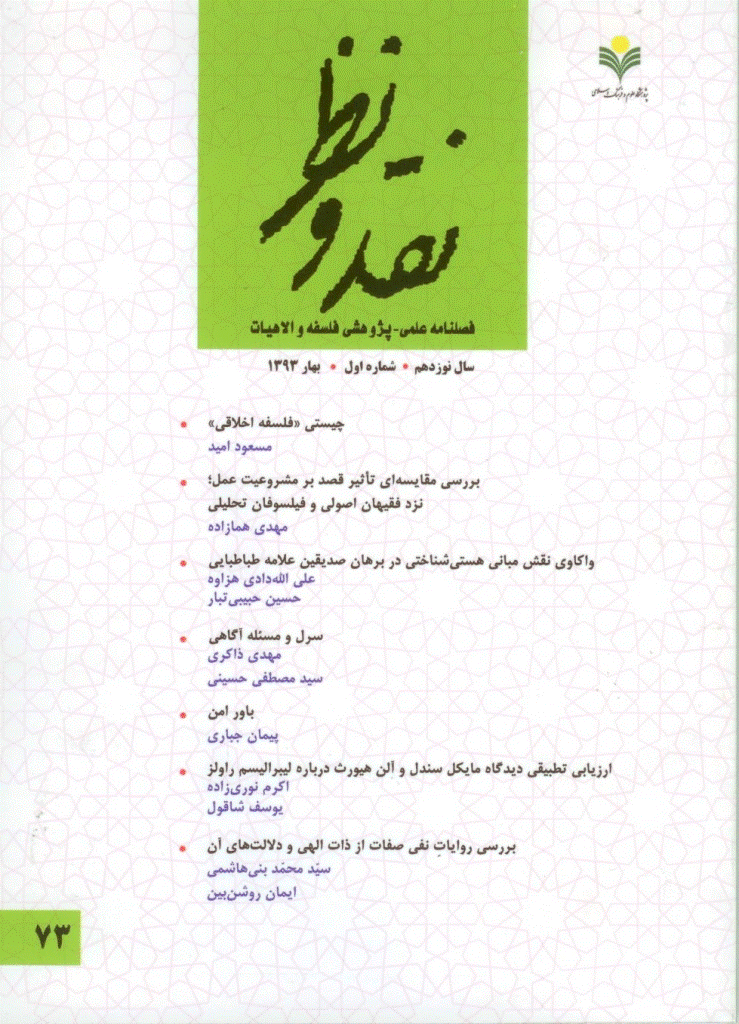 نقد و نظر
پژوهشگاه علوم و فرهنگ اسلامی
فصلنامه علمی-پژوهشی فلسفه و الاهیات
سال نوزدهم • شماره اول • بهار ۱۳۹۳
چیستی «فلسفه اخلاقی»
مسعود امید
بررسی مقایسه‌ای تأثیر قصد بر مشروعیت عمل؛
نزد فقیهان اصولی و فیلسوفان تحلیلی
مهدی همازاده
واکاوی نقش مبانی هستی‌شناختی در برهان صدیقین علامه طباطبایی
علی الله‌دادی هزاوه
حسین حبیبی‌تبار
سرل و مسئله آگاهی
مهدی ذاکری
سید مصطفی حسینی
باور امن
پیمان جباری
ارزیابی تطبیقی دیدگاه مایکل سندل و آلن هیورث درباره لیبرالیسم راولز
اکرم نوری‌زاده
یوسف شاقول
بررسی روایاتِ نفی صفات از ذات الهی و دلالت‌های آن
سیّد محمّد بنی‌هاشمی
ایمان روشن‌بین
۷۳